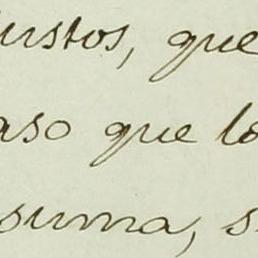 justos, que
aso que lo
suma, s